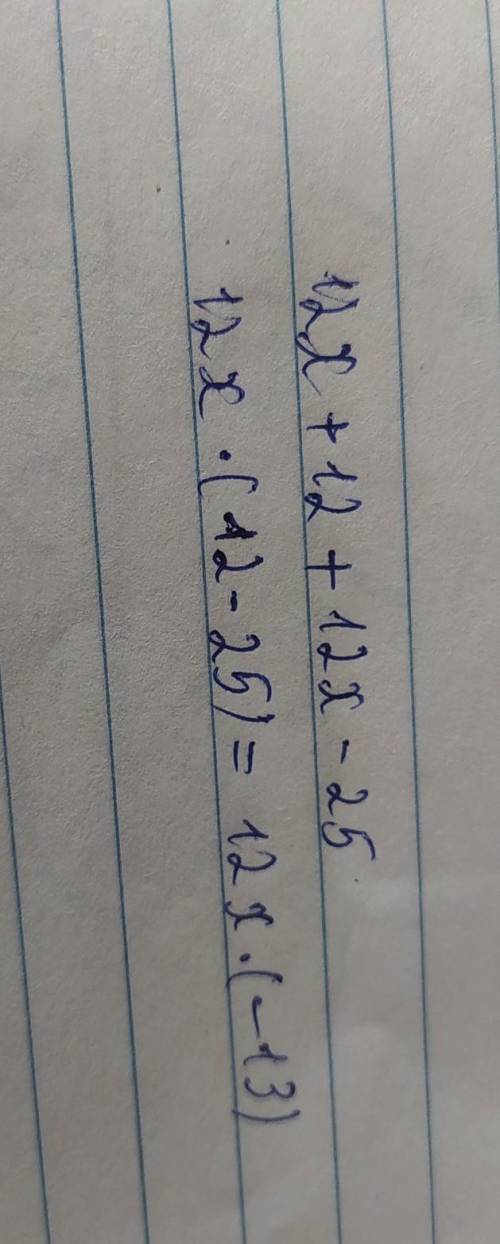 12x + 12 + 12x - 25
12x · (12 - 25) = 12x · (-13)